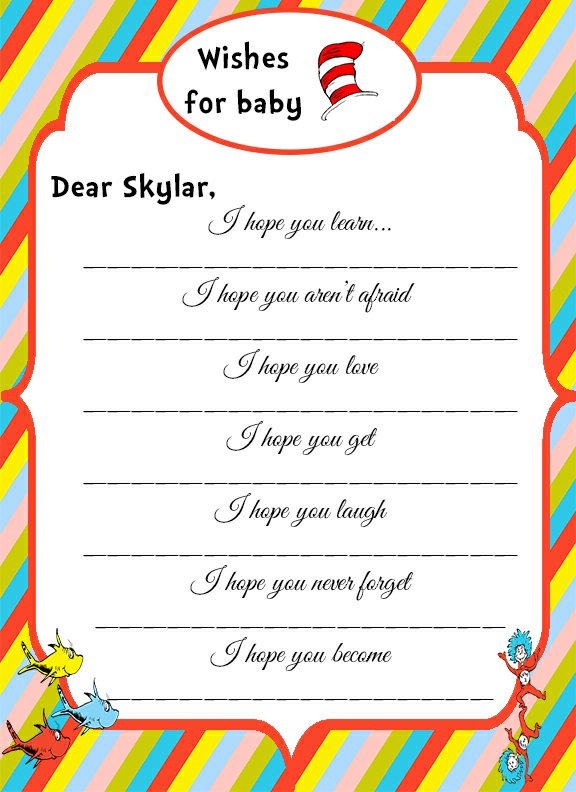 Wishes
for baby
Dear Skylar,
I hope you learn...
I hope you aren't afraid
I hope you love
I hope you get
I hope you laugh
I hope you never forget
I hope you become